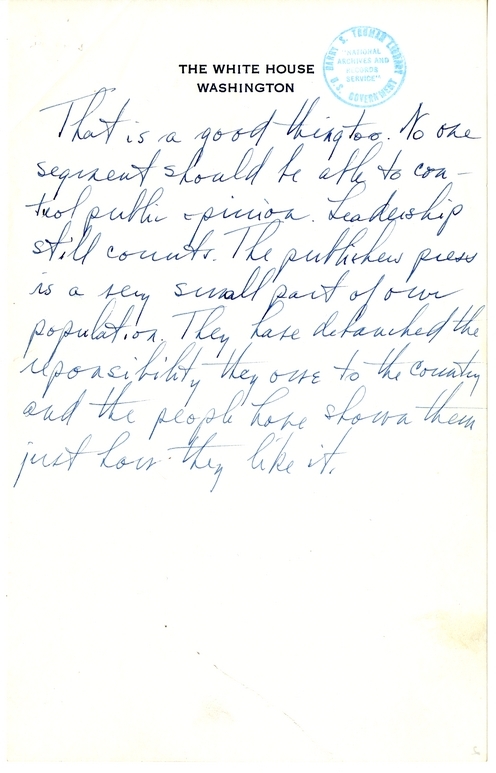 HARRY S. TRUMAN LIBRARY
"NATIONAL
ARCHIVES AND
RECORDS
SERVICE"
U.S. GOVERNMENT
THE WHITE HOUSE
WASHINGTON
That is a good thing too. No one
segment should be able to con-
trol public opinion. Leadership
still counts. The publishers press
is a very small part of our
population. They have debauched the
reponsibility they owe to the country
and the people have shown them
just how they like it.